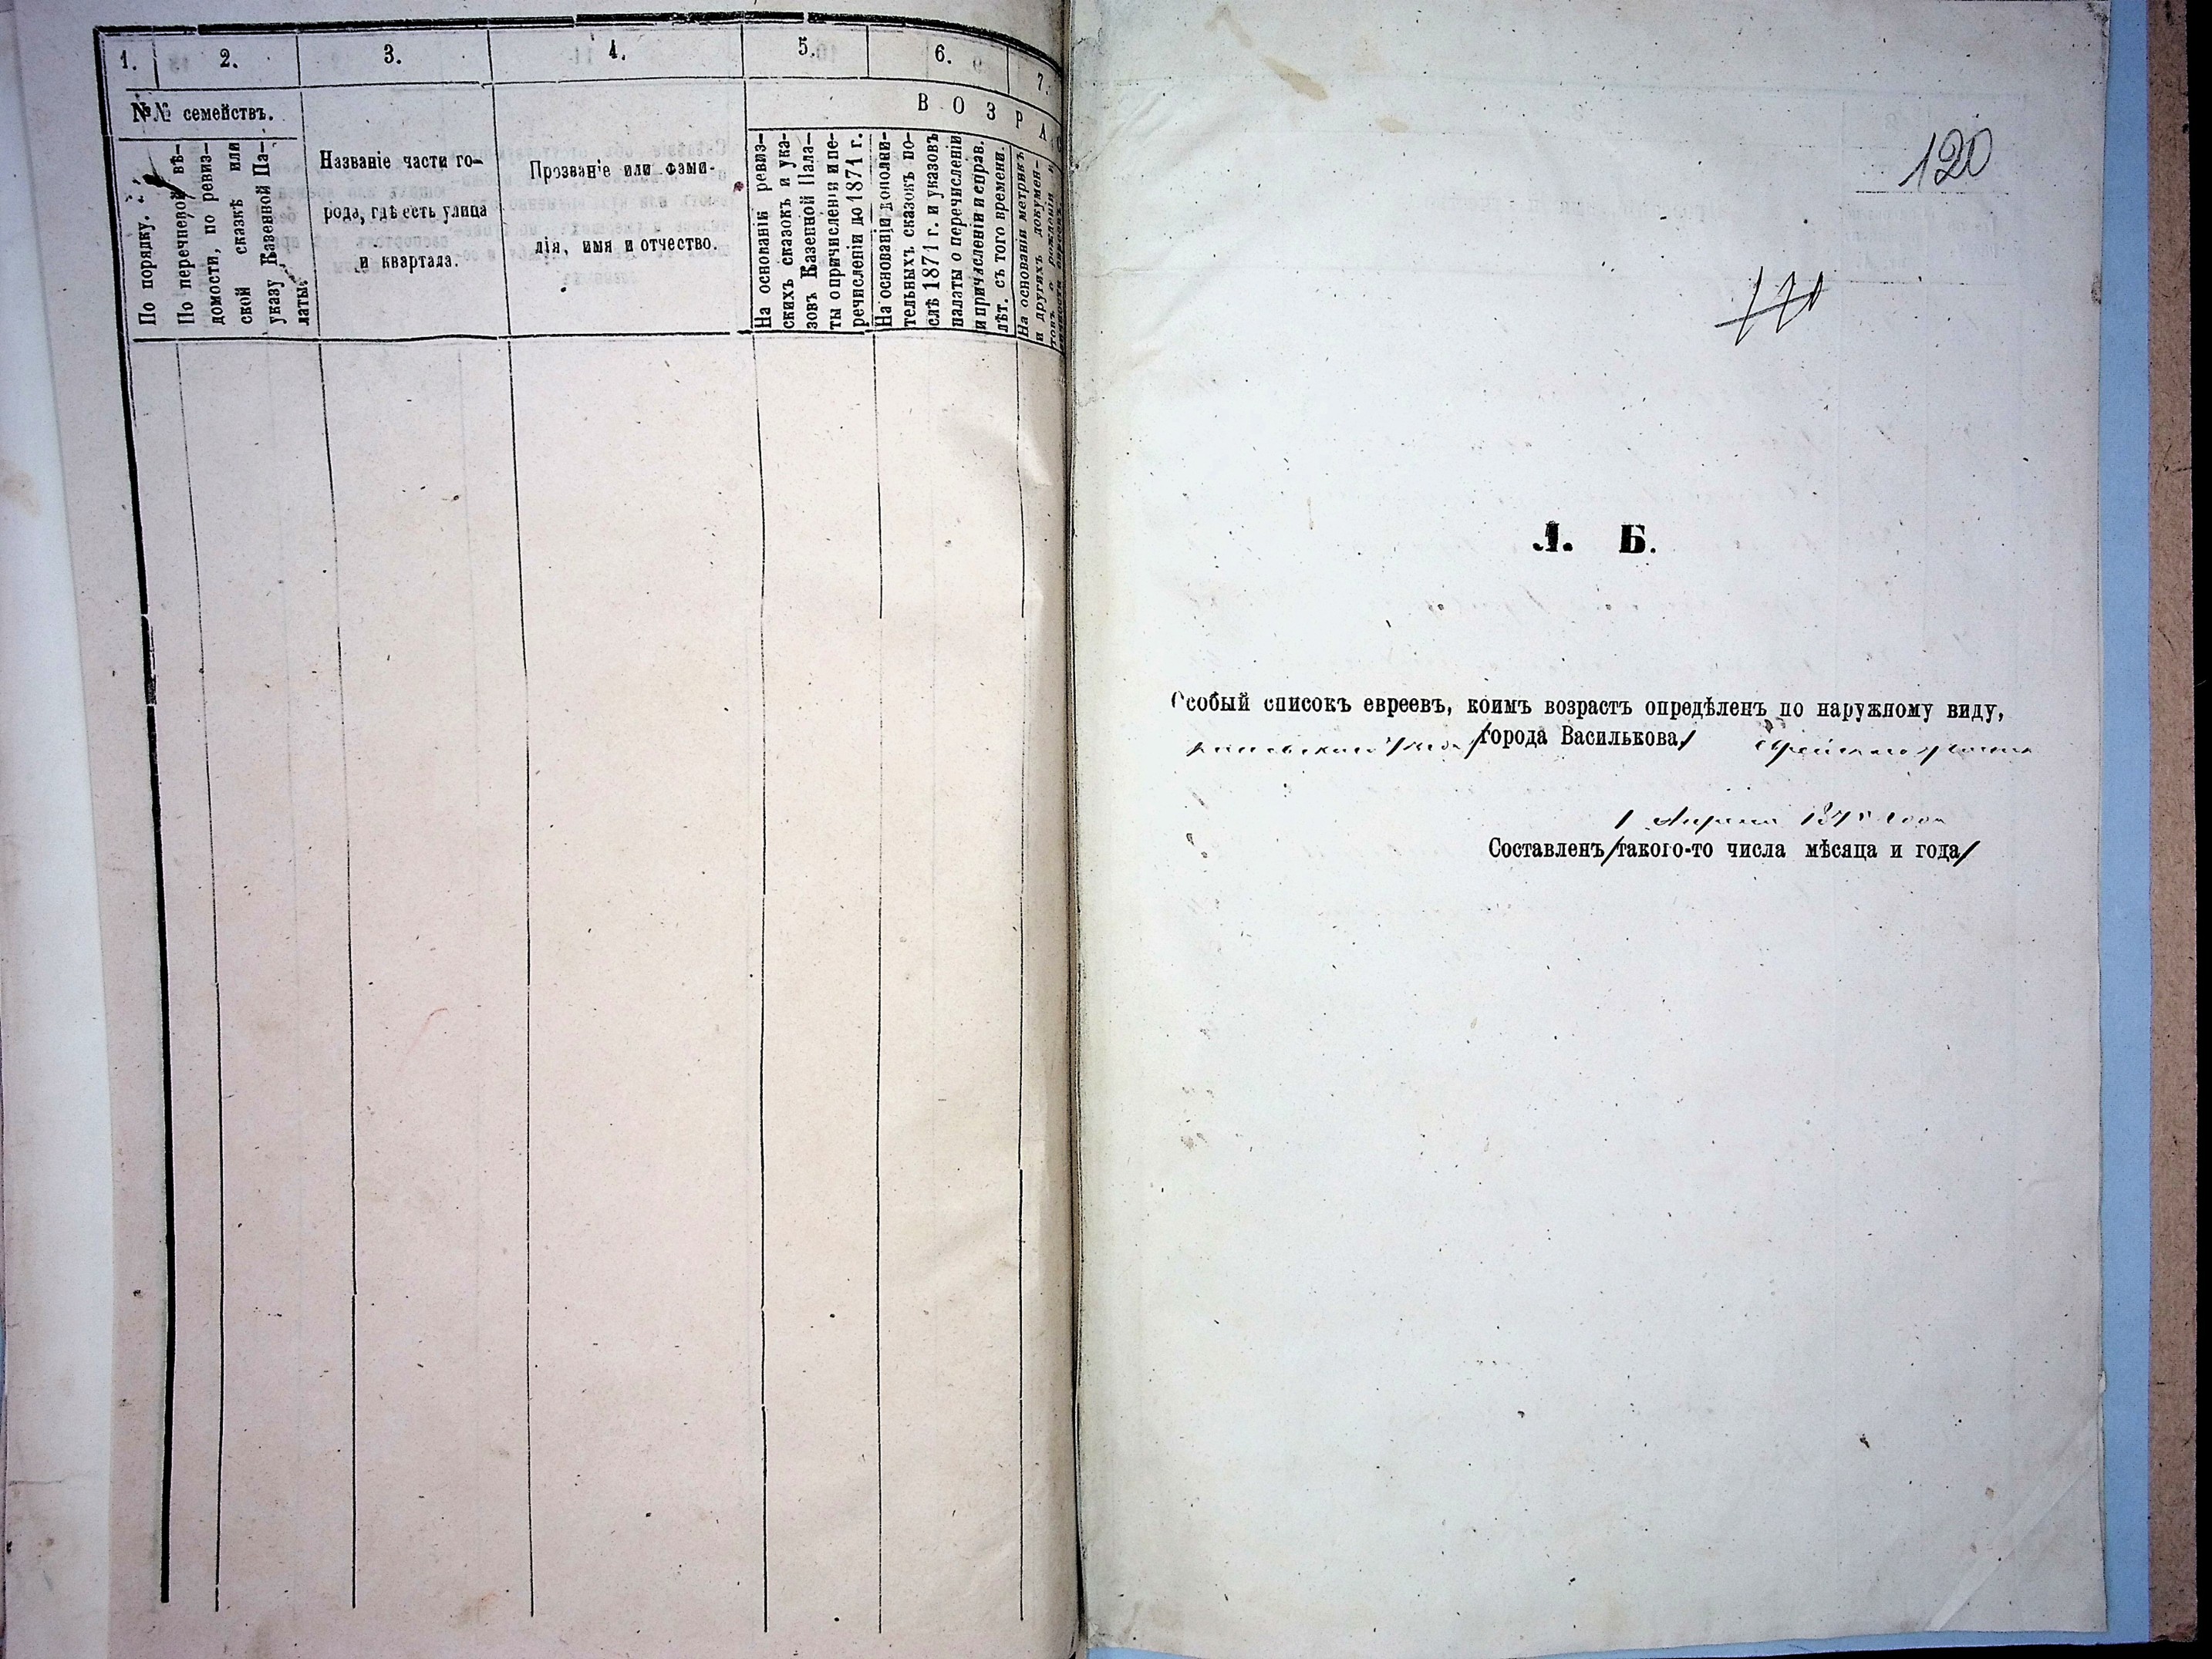 1. 2. 3. 4. 5. 6. 7.
№№ семействъ.
В О З Р А
По порядку.
По перечневой вѣ-
домости, по ревиз-
ской сказкѣ или
указу Казенной Па-
латы.
Названіе части го-
рода, гдѣ есть улица
и квартала.
Прозваніе или фами-
лія, имя и отчество.
На основаніи ревиз-
скихъ сказокъ и ука-
зовъ Казенной Пала-
ты о причисленіи и пе-
речисленіи до 1871 г.
На основаніи дополни-
тельныхъ сказокъ по-
слѣ 1871 г. и указовъ
палаты о перечисленіи
и причисленіи и справ.
лѣт. съ того времени.
На основаніи метрикъ
и другихъ докумен-
товъ о рожденіи и
120
Л. Б.
Особый списокъ евреевъ, коимъ возрастъ опредѣленъ по наружному виду,
/города Василькова/
1 Апрѣля года
Составленъ /такого-то числа мѣсяца и года/